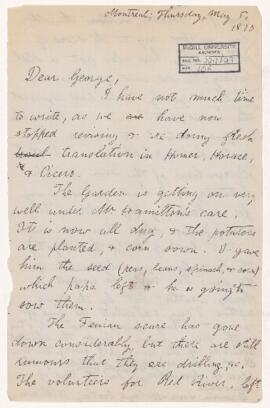 Montreal; Thursday, May 5,
1870
McGILL UNIVERSITY
ARCHIVES
ACC. NO.
REF.
Dear George,
I have not much time
to write, as we are have now
stopped revising & are doing fresh
translation in Homer, Horace,
& Cicero.
The Garden is getting on very
well under Mr Hamilton's care.
It is now all dug, & the potatoes
are planted, & corn sown. I gave
him the seed (peas, beans, spinach, & corn)
which papa left & he is going to
sow them.
The Fenian scare has gone
down considerably, but there are still
rumours that they are drilling, &c.
The volunteers for Red River, left